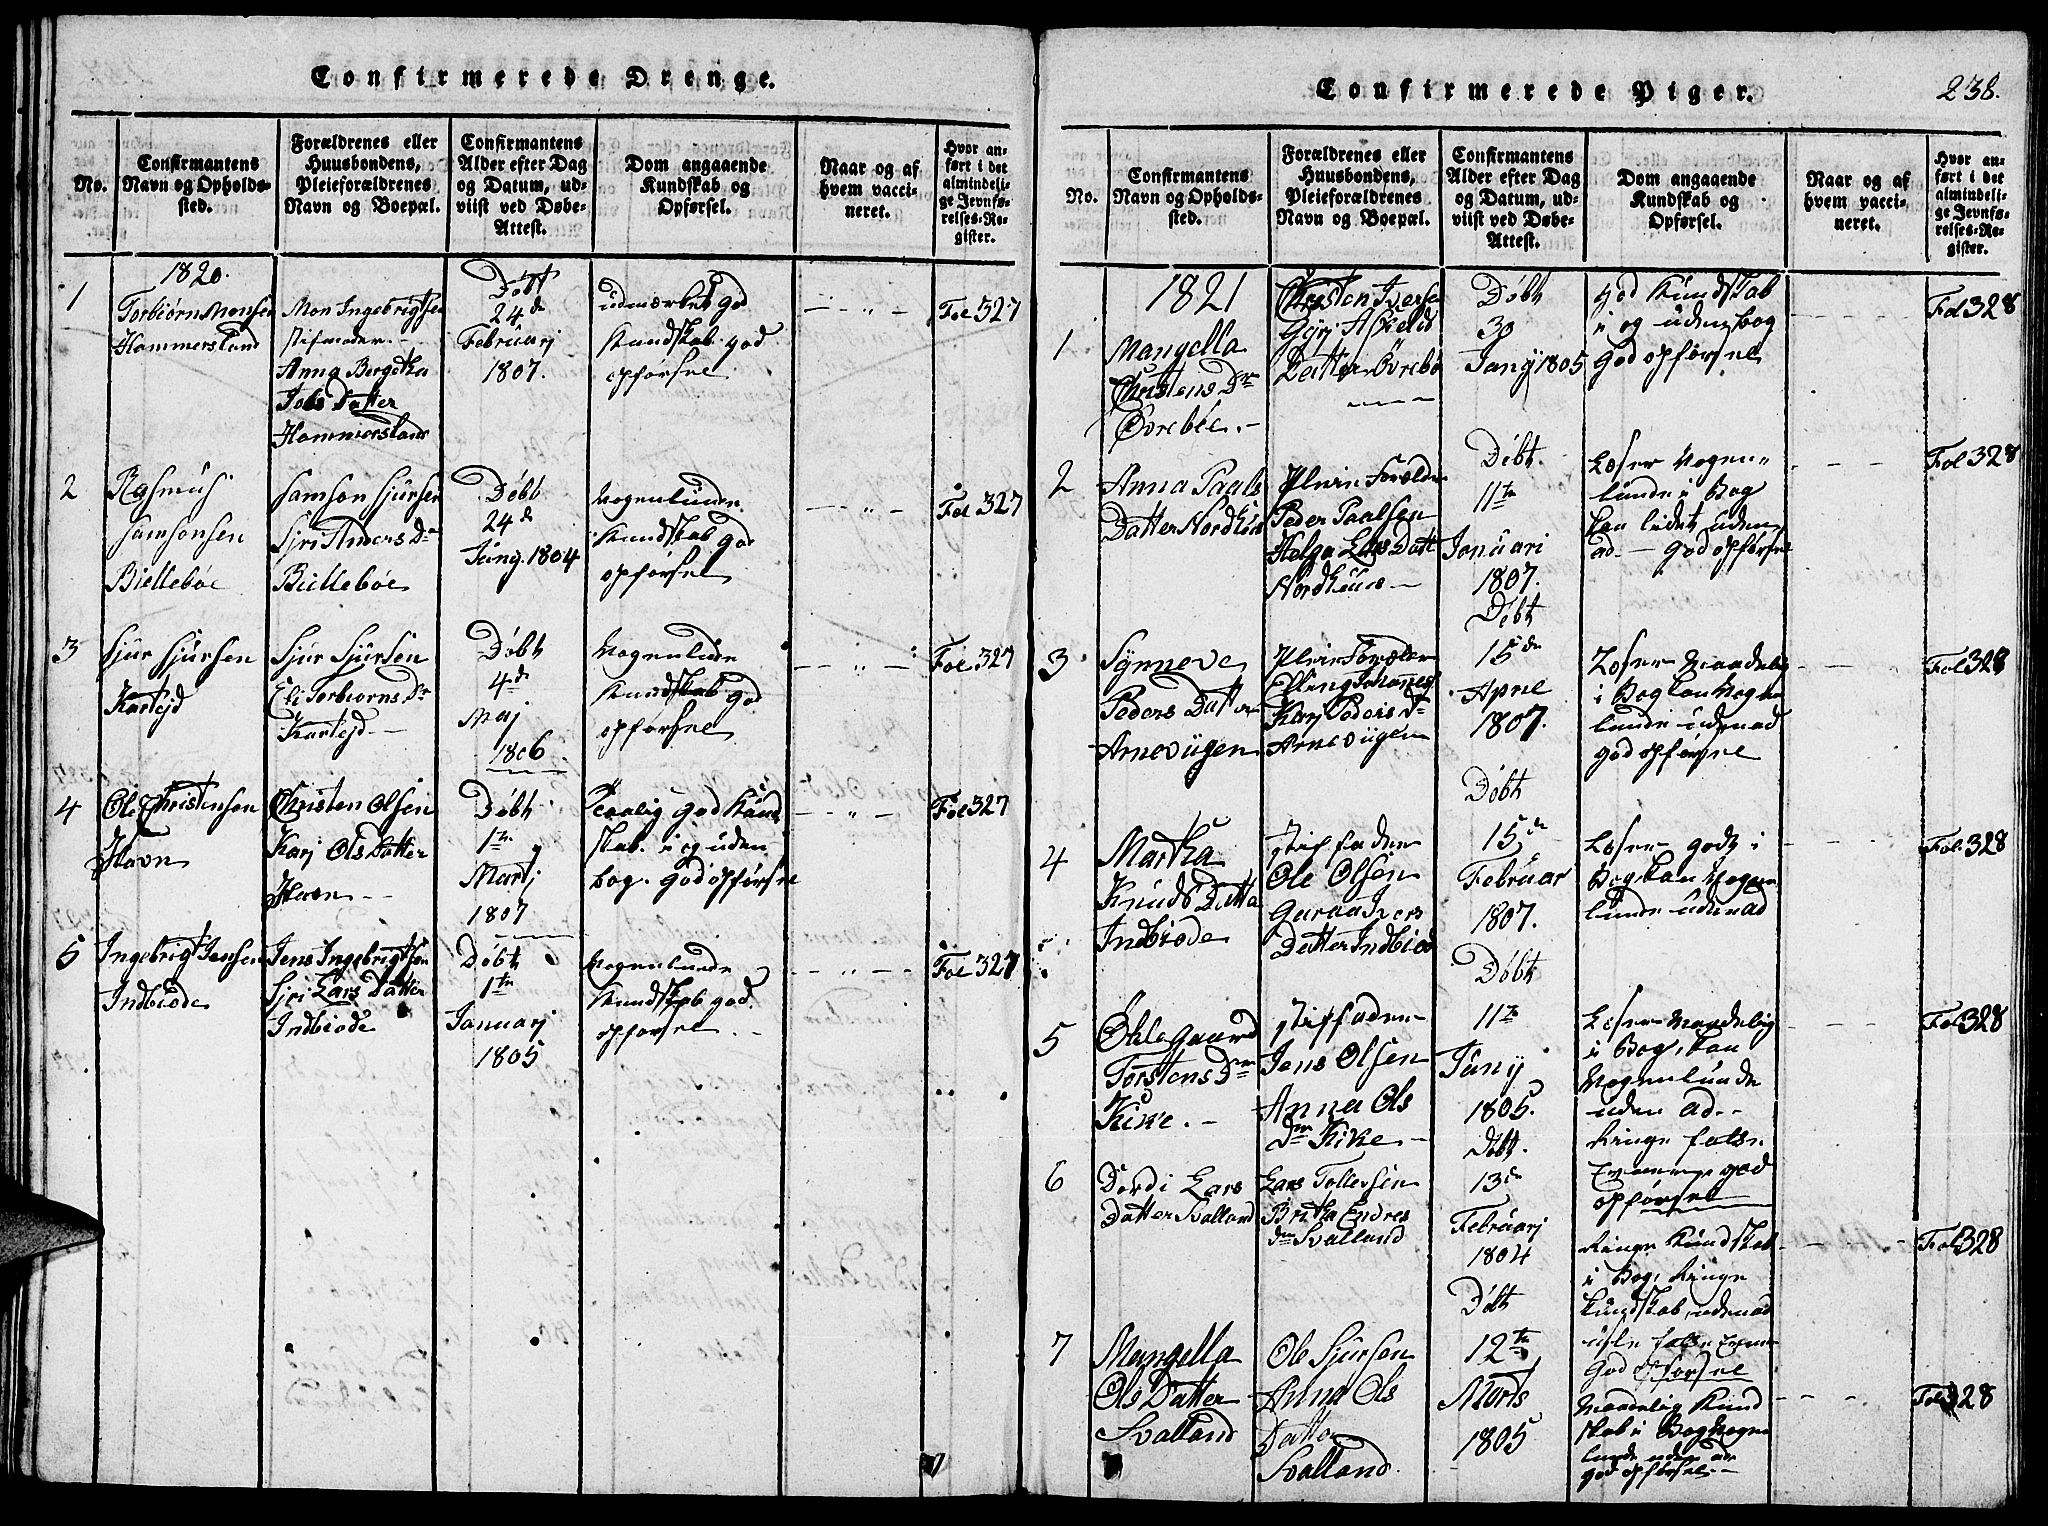 Confirmerede Drenge.
No.
Confirmantens
Navn og Opholds-
sted.
Forældrenes eller
Huusbondens,
Pleieforældrenes
Navn og Boepæl.
Confirmantens
Alder efter Dag
og Datum, ud-
viist ved Døbe-
Attest.
Dom angaaende
Kundskab og
Opførsel.
Naar og af
hvem vacci-
neret.
Hvor an-
ført i det
almindeli-
ge Jevnfø-
relses-Re-
gister.
1820.
1
Torbiørn Monsen
Hammersland
Mon Ingebrigtsen
stifmoder
Anna Bergitha
Jobs Datter
Hammersland
Døbt
24de
Februarj
1807.
udmærket god
Kundskab god
opførsel
Fol 327
2
Rasmus
Samsonsen
Biellebøe
Samson Sjursen
Sjri Anders Dr
Biellebøe
Døbt
24de
Juny 1804
Nogenlunde
Kundskab god
opførsel
Fol 327
3
Sjur Sjursen
Kartejd
Sjur Sjursen
Eli Torbiorns Dr
Kartejd
Døbt
4de
Maj
1806.
Nogenlunde
Kundskab god
opførsel
Fol 327
4
Ole Christensen
Havn
Christen Olsen
Karj Ols Datter
Havn
Døbt
1te
Martj
1807
god Kund
skab i og uden
bog. god opførsel
Fol 327
5
Ingebrigt Jensen
Indbiode
Jens Ingebrigtsen
Sjri Lars Datter
Indbiode
Døbt
1te
Januarj
1805
Nogenlunde
Kundskab god
opførsel
Fol 327
Confirmerede Piger.
238.
No.
Confirmantens
Navn og Opholds-
sted.
Forældrenes eller
Huusbondens,
Pleieforældrenes
Navn og Boepæl.
Confirmantens
Alder efter Dag
og Datum, ud-
viist ved Døbe-
Attest.
Dom angaaende
Kundskab og
Opførsel.
Naar og af
hvem vacci-
neret.
Hvor an-
ført i det
almindeli-
ge Jevnfø-
relses-Re-
gister.
1821
1
Mangella
Christens Dr
Øvrebøe.
Christen Iversen
Datter Øvrebø
Døbt
30
Janij 1805
god Kundskab
i og uden bog
God opførsel
Fol 328
2
Anna Paals
Datter Nordhuus
Pleie Forældre
Peder Paalsen
Helga Lars Datt
Nordhuus
Døbt.
11te
Januari
1807.
Læser Nogen-
lunde i Bog
kan lidet uden
ad. God opførsel
Fol 328
3
Synneve
Peders Datter
Arnevügen
Pleie Forælder
Elling Johannes
Karj Peders Dr
Arnevügen
Døbt
15de
Aprel
1807.
Læser Maadelig
i Bog kan Nogen
lunde udenad
god opførsel
Fol 328
4
Martha
Knuds Datter
Indbiode
Stiffader
Ole Olsen
Ivers
Datter Indbiod
Døbt
15de
Februar
1807.
Læser godt i
Bog kan Nogen
lunde udenad
Fol 328
5
Oldegaard
Torstens Dr
Kirke.
Stiffader
Jens Olsen
Anna Ols
Dr Kirke
Døbt
11te
Juny
1805.
Læser Maadelig
i Bog, kan
Nogenlunde
uden ad
Ringe
god
opførsel
Fol 328
6
Dordi Lars
Datter Svalland
Lars Tollefsen
Britha Endres
Dr Svalland
Døbt.
13de
Februarj
1804
Ringe Kundskab
i Bog, Ringe
Kundskab udenad
God opførsel
Fol 328
7
Mangella
Ols Datter
Svalland
Ole Sjursen
Anna Ols
Datter
Svalland
Døbt
12te
Marts
1805
Maadelig Kund
skab i Bog Nogen
lunde uden ad
god opførsel
Fol 328